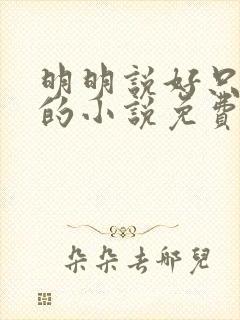 明明說好只
的小說免費
朵朵去哪兒